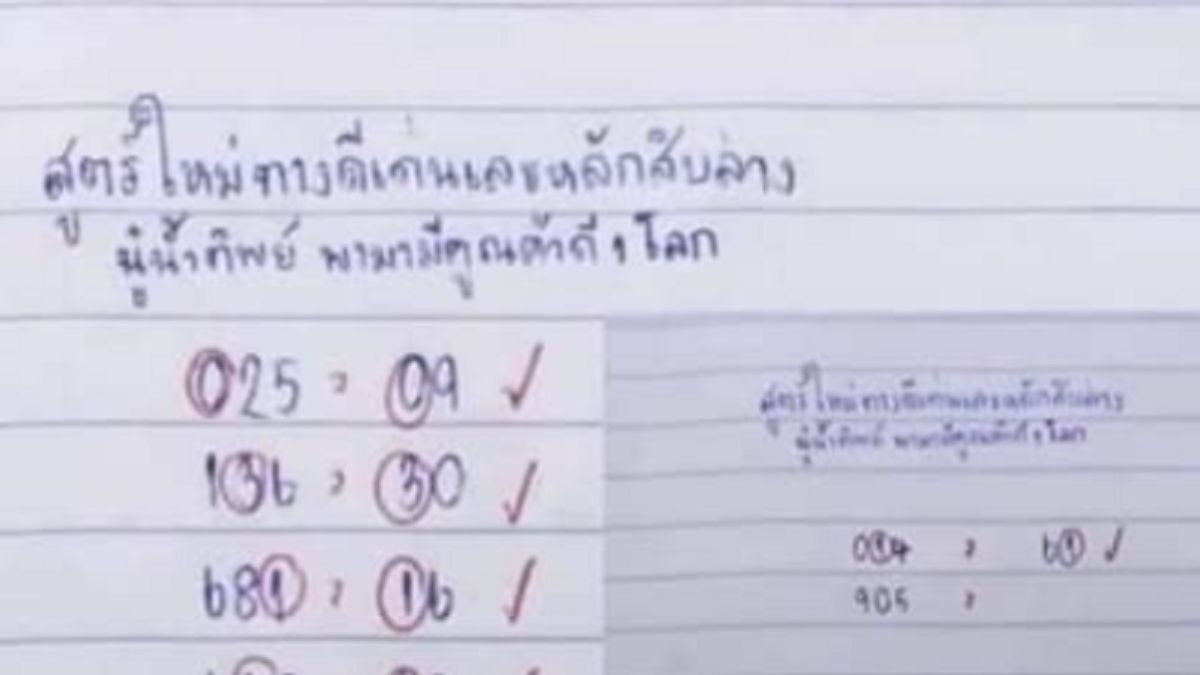 สูตรใหม่ทางดีเด่นและหลักสิบล่าง
ปู่น้ำทิพย์ พามามีคูณค้าถึง โลก
025 = 09 ✓
136 = 30 ✓
681 = 16 ✓
สูตรใหม่ทางดีเด่นและหลักสิบล่าง
ปู่น้ำทิพย์ พามามีคูณค้าถึง โลก
014 = 61 ✓
905 =